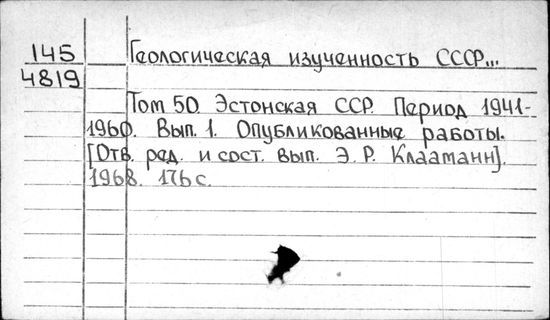 145 Геологическая изученность СССР...
4819
Том 50. Эстонская ССР. Период 1941-
1960. Вып. 1. Опубликованные работы.
[Отв. ред. и сост. вып. Э. Р. Клааманн].
1968. 176 с.